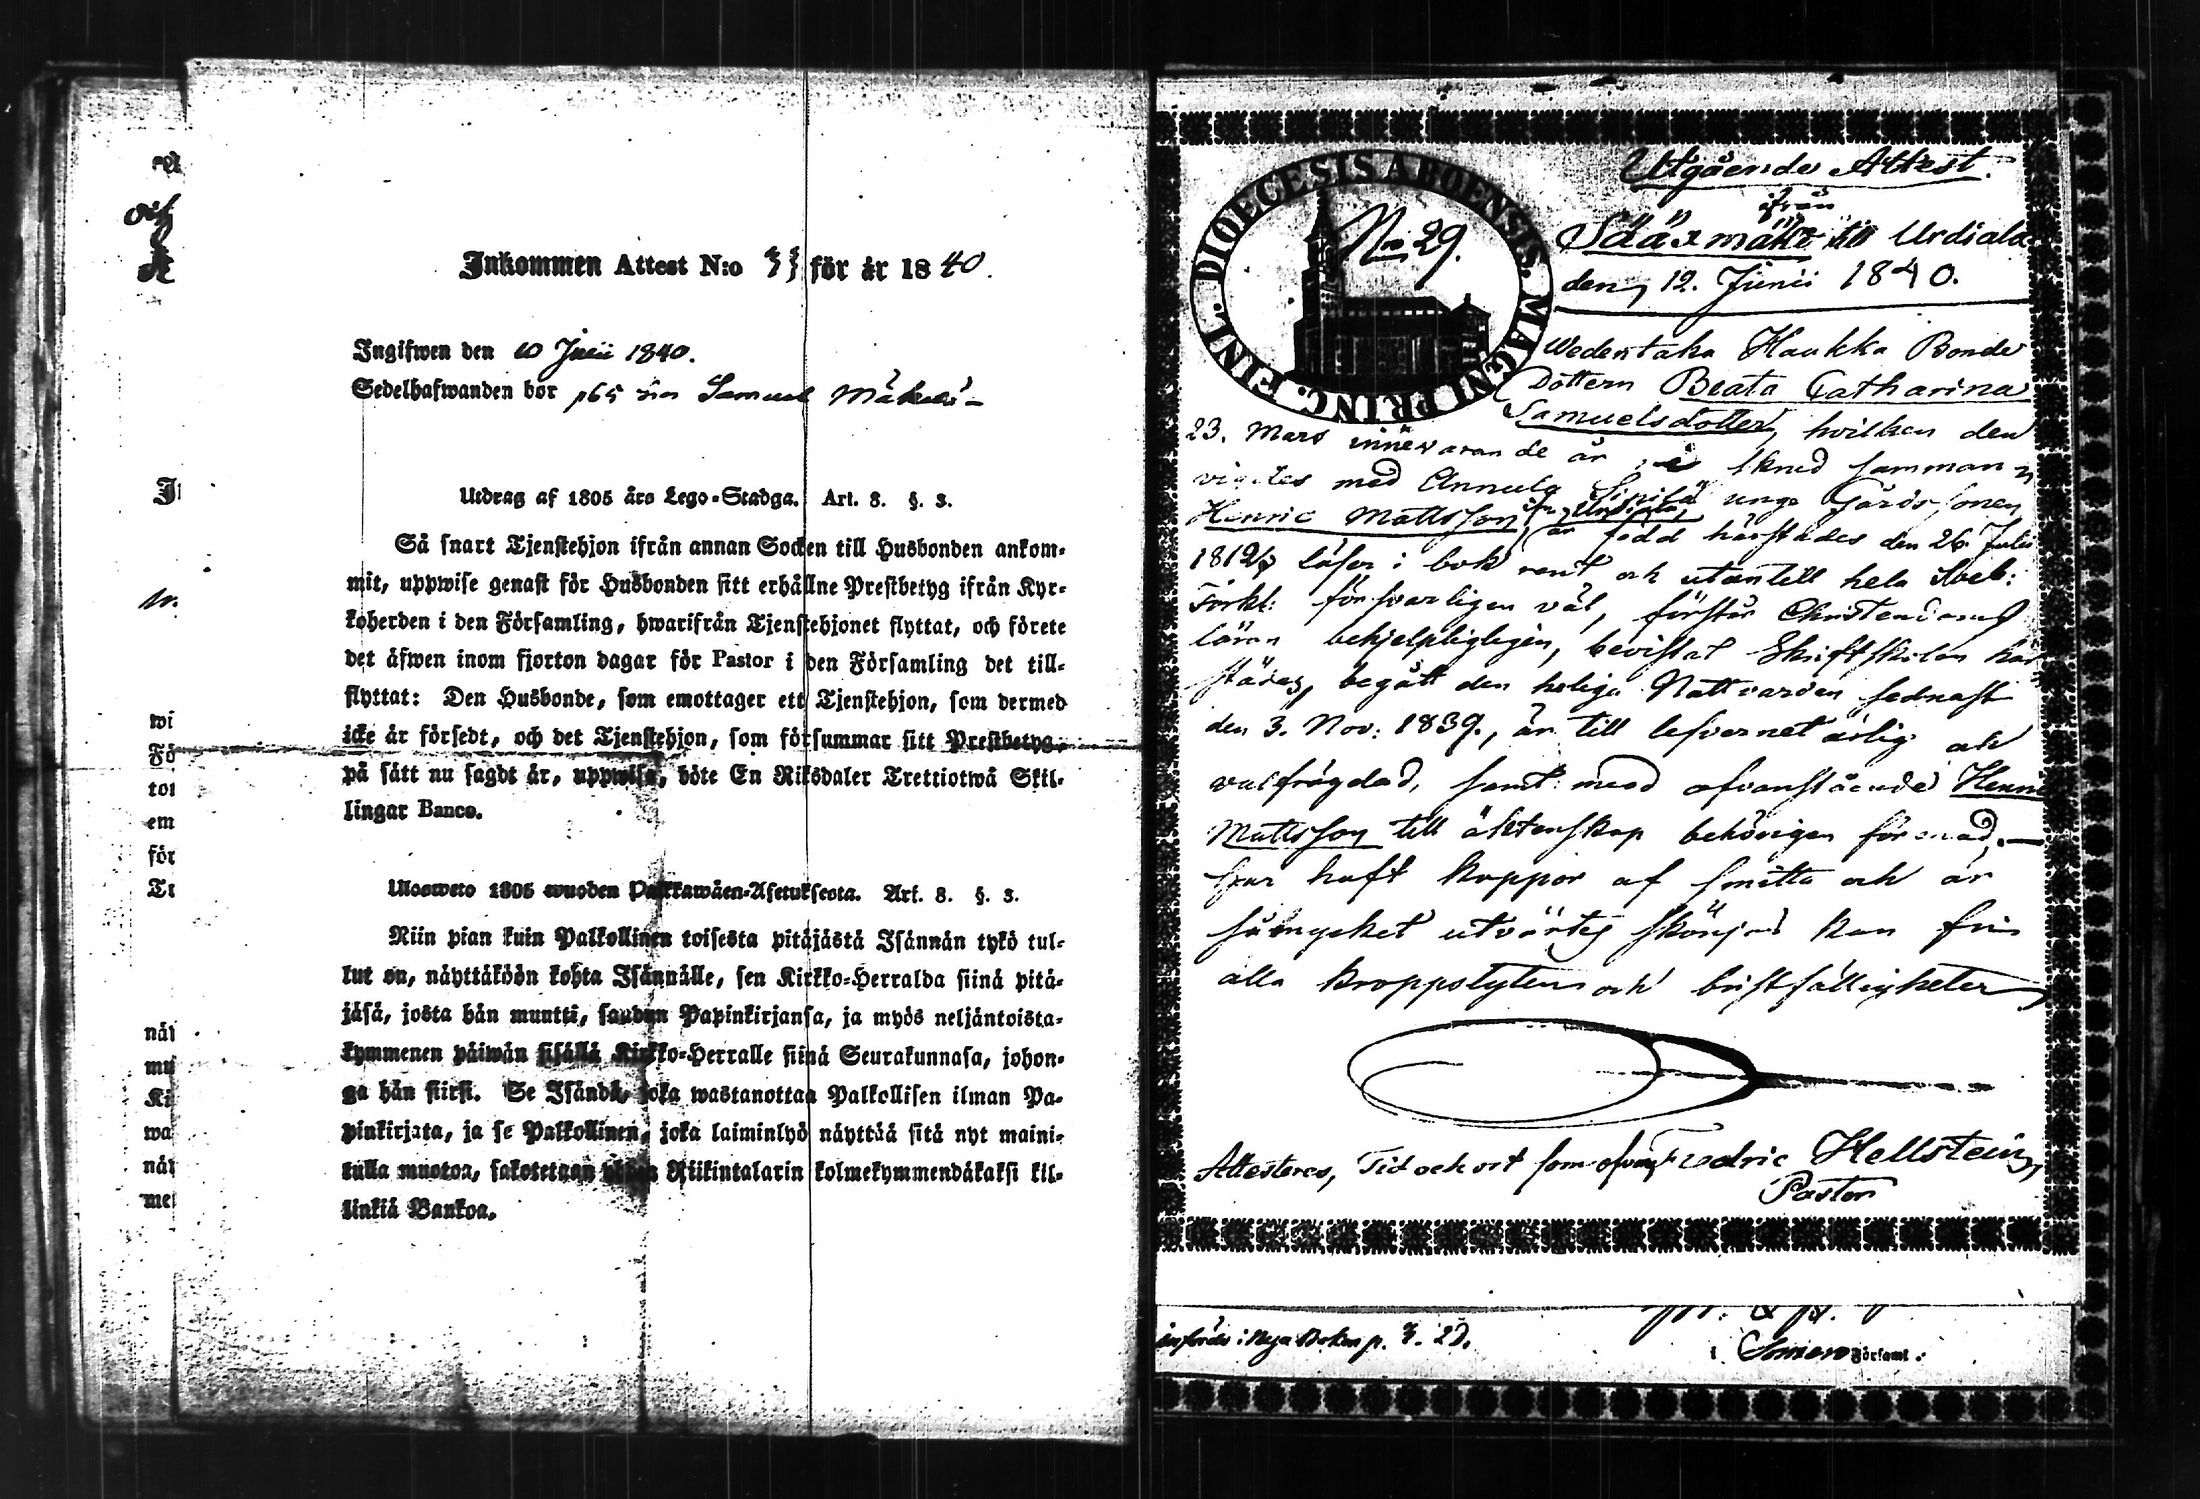 Inkommen Attest N:o 33 för år 1840.
Ingifwen den 10 Junii 1840.
Sedelhafwanden bor p65 Samuel Mäkelä
Utdrag af 1805 års Lego-Stadga. Art. 8. §. 3.
Så snart Tjenstehjon ifrån annan Socken till Husbonden ankom-
mit, uppwise genast för Husbonden sitt erhållne Prestbetyg ifrån Kyr-
koherden i den Församling, hwarifrån Tjenstehjonet flyttat, och förete
det äfwen inom fjorton dagar för Pastor i den Församling det till-
flyttat: Den Husbonde, som emottager ett Tjenstehjon, som dermed
icke är försedt, och det Tjenstehjon, som försummar sitt Prestbetyg,
på sätt nu sagdt är, uppwisa, böte En Riksdaler Trettiotwå Skil-
lingar Banco.
Ulosweto 1805 wuoden Palkkawäen-Asetuksesta. Art. 8. §. 3.
Niin pian kuin Palkollinen toisesta pitäjästä Isännän tykö tul-
lut on, näyttäköön kohta Isännälle, sen Kirkko-Herralda siinä pitä-
jäsä, josta hän muutti, saadun Papinkirjansa, ja myös neljäntoista-
kymmenen päiwän sisällä Kirkko-Herralle siinä Seurakunnasa, johon-
ga hän siirsi. Se Isändä, joka wastanottaa Palkollisen ilman Pa-
pinkirjata, ja se Palkollinen, joka laiminlyö näyttää sitä nyt maini-
tulla muotoa, sakotetaan yhden Riikintalarin kolmekymmendäkaksi kil-
linkiä Bankoa.
DIOECESIS ABOENSIS. MAGNI PRINC. FINL.
No 29.
Utgående Attest.
ifrån
Sääxmäki till Urdiala
den 12. Junii 1840.
Wedentaka Haukka Bonde
Dottern Beata Catharina
Samuelsdotter, hvilken den
23. Mars innevarande år sammann
vigdes med Annula Sipilä unge Gårdssonen
Henric Mattsson i Urdiala, är född härstädes den 26. Julii
1812, läser i bok rent och utantill hela Abeb:
Förkl: försvarligen väl, förstår Christendoms
läran behjelpligtligen, bevistat Skriftskolan här
städes, begått den heliga Nattvarden sednast
den 3. Nov: 1839., är till lefvernet ärlig och
välfrägdad, samt med ofvanstående Henric
Mattsson till äktenskap behörigen förenad,
har haft koppor af smitta och är
såmycket utvärtes skönjas kan från
alla kroppslyten och bristfälligheter
Attesteras, Tid och ort som ofvan Fredric Hellsteen,
Pastor
införde i Nya Boken p.
i Somero Församl.